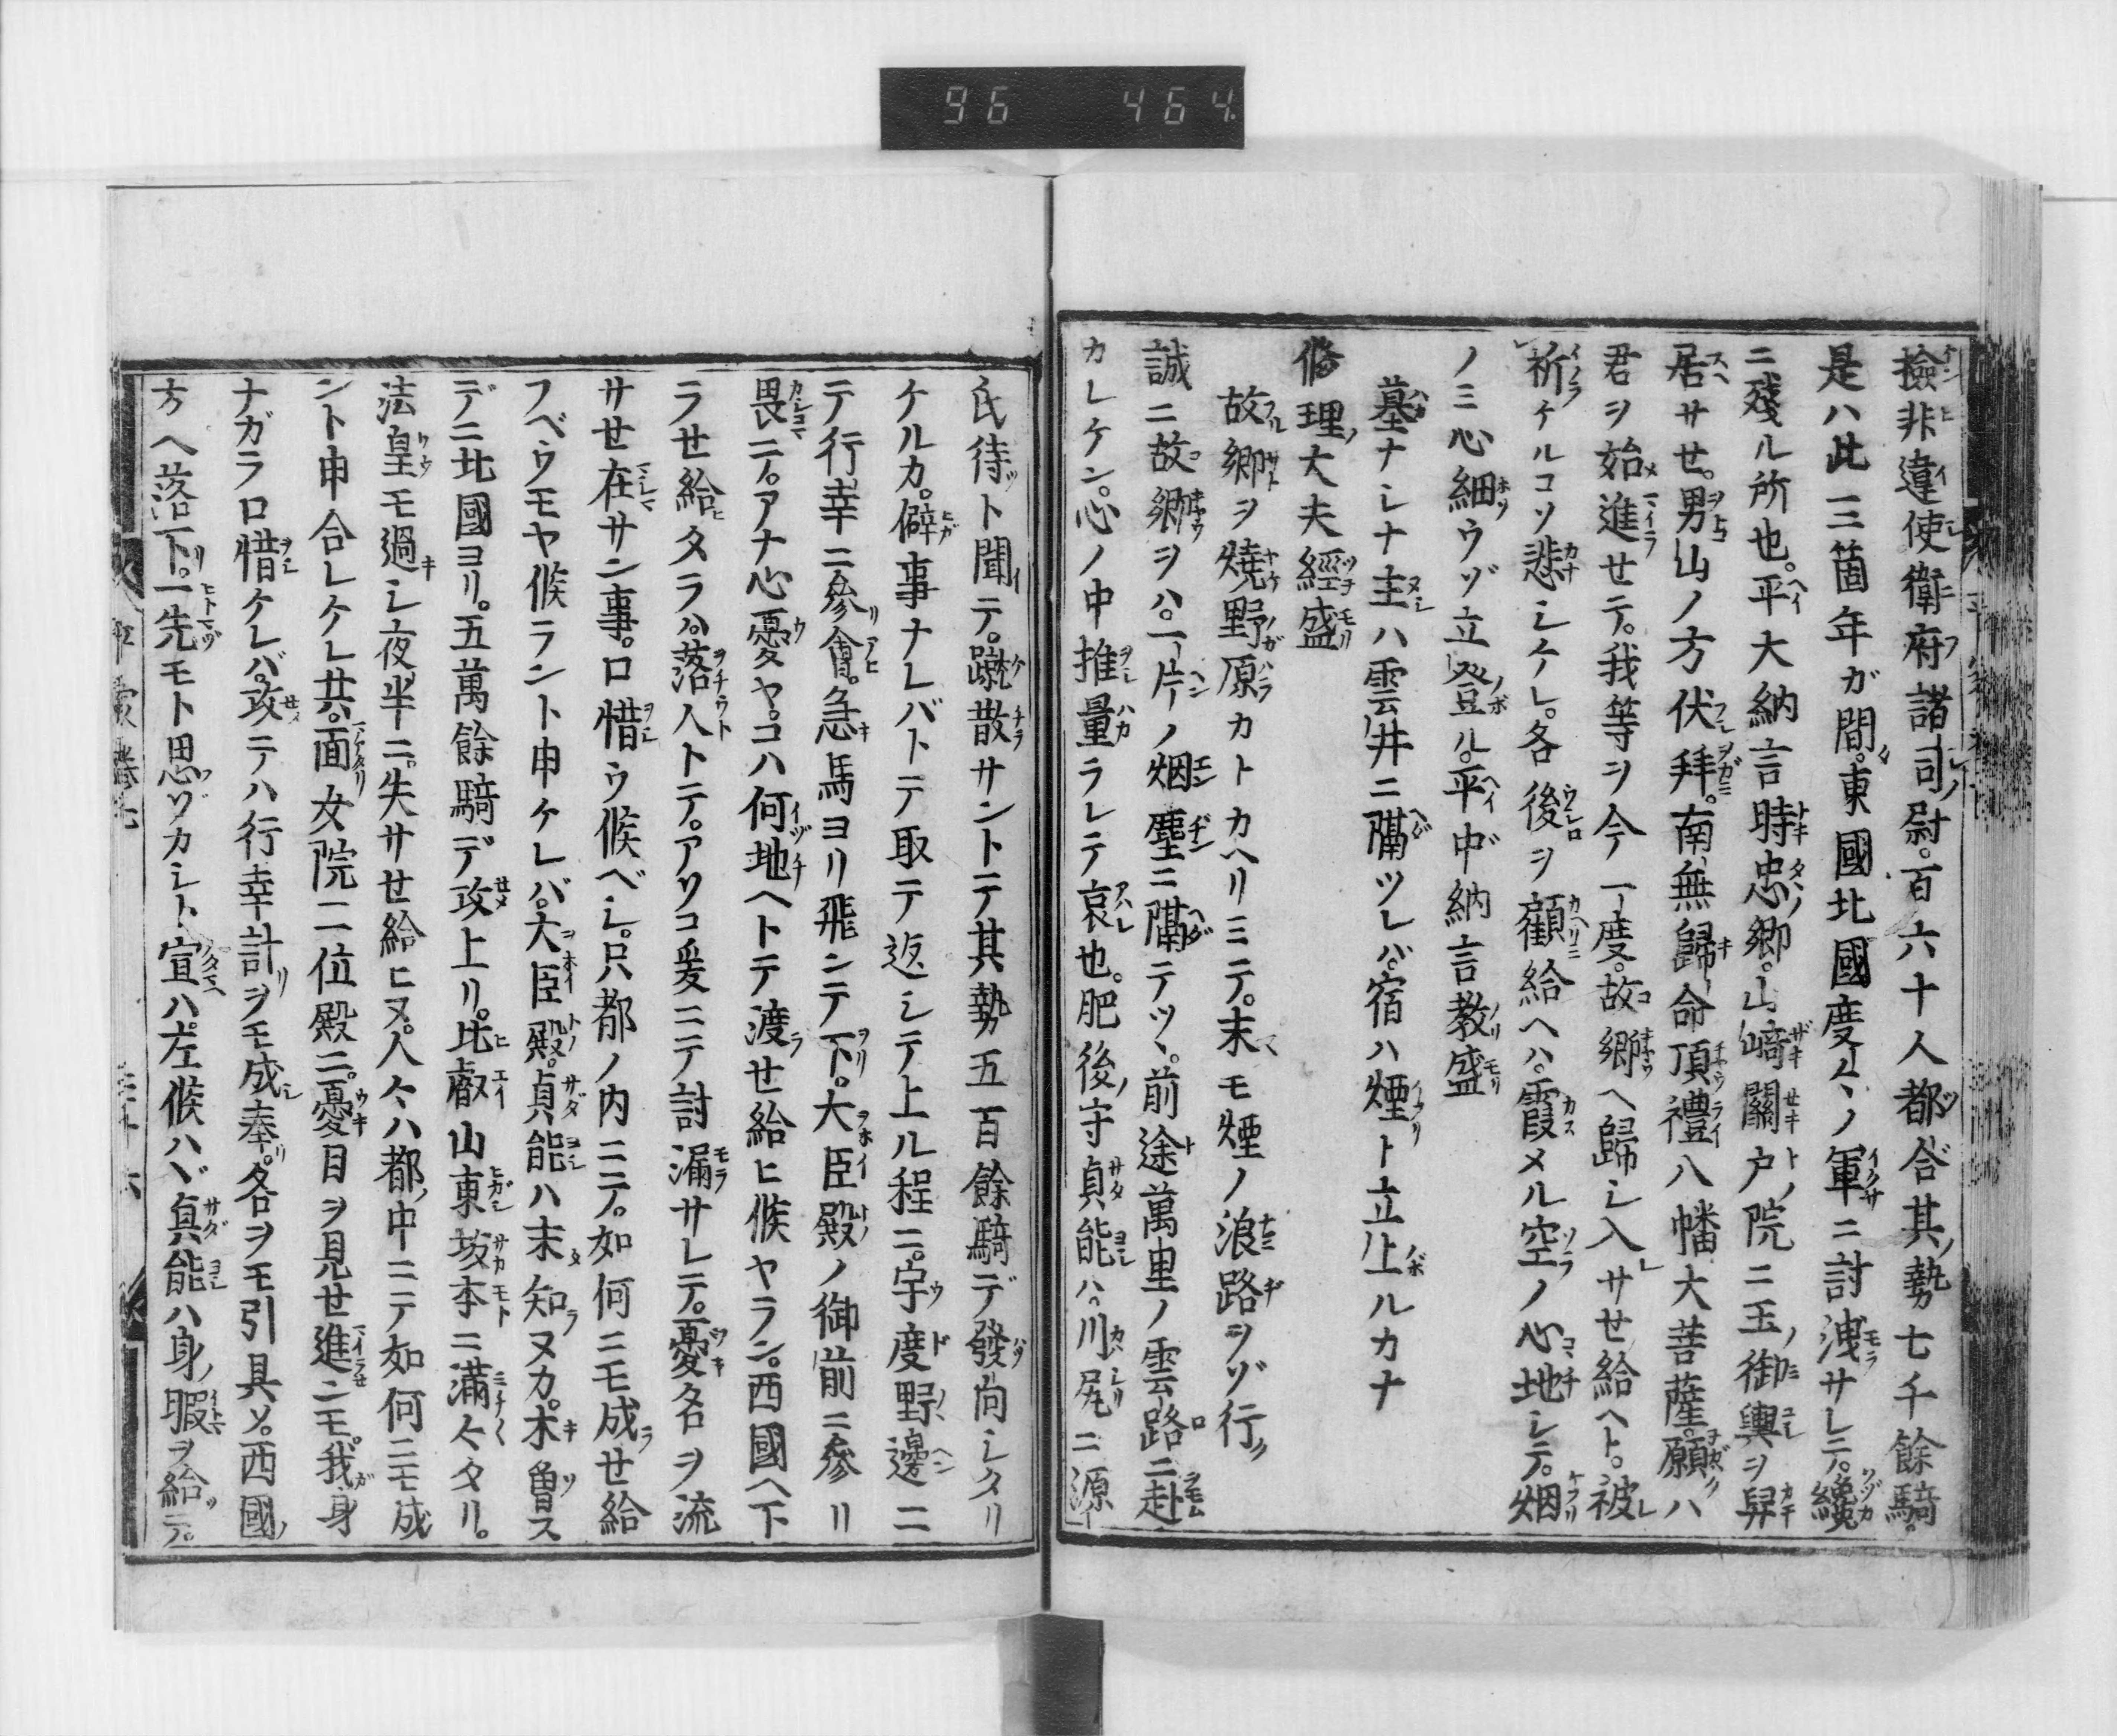 96 464
撿非違使衛府諸司ノ尉。百六十人都合其ノ勢七千餘騎。
是ハ此三箇年ガ間。東國北國度々ノ軍ニ討洩サレテ。纔
ニ殘ル所也。平大納言時忠ノ卿。山﨑關戸ノ院ニ玉ノ御輿ヲ舁
居サせ。男山ノ方伏拜。南無歸命頂禮八幡大菩薩。願ハ
君ヲ始進せテ。我等ヲ今一度。故郷ヘ歸シ入サせ給ヘト。被レ
祈ケルコソ悲シケレ。各後ヲ顧給ヘハ。霞メル空ノ心地シテ。烟
ノミ心細ウヅ立登ル。平中納言教盛
墓ナシナ主ハ雲井ニ隔ツレバ。宿ハ煙ト立上ルカナ
修理ノ大夫經盛
故郷ヲ燒野原カトカヘリミテ。末モ煙ノ浪路ヲヅ行ク
誠ニ故郷ヲハ。一片ノ烟塵ニ隔テツヽ。前途萬里ノ雲路ニ赴
カレケン。心ノ中推量ラレテ哀也。肥後ノ守貞能ハ。川尻ニ源
氏待ツト聞テ。蹴散サントテ其勢五百餘騎デ發向シタリ
ケルカ。僻事ナレバトテ取テ返シテ上ル程ニ。宇度野ノ邊ニ
テ行幸ニ參會。急キ馬ヨリ飛ンテ下。大臣殿ノ御前ニ參リ
畏ニテ。アナ心憂ヤ。コハ何地ヘトテ渡せ給ヒ候ヤラン。西國ヘ下
ラせ給ヒタラハ。落人トテ。アソコ爰ニテ討漏サレテ。憂名ヲ流
サせ在サン事。口惜ウ候ベシ。只都ノ内ニテ。如何ニモ成せ給
フベウモヤ候ラント申ケレバ。大臣殿。貞能ハ末知ヌカ。木曽ス
デニ北國ヨリ。五萬餘騎デ攻上リ。比叡山東坂本ニ滿々タリ。
法皇モ過シ夜半ニ。失サせ給ヒヌ。人々ハ都ノ中ニテ如何ニモ成
ント申合レケレ共。面女院二位殿ニ。憂目ヲ見せ進ンモ。我身
ナガラ口惜ケレバ。攻テハ行幸計ヲモ成シ奉リ。各ヲモ引具ソ。西國ノ
方ヘ落下リ。一先モト思ヅカシト宣ハ。左候ハヾ貞能ハ身ノ暇ヲ給テ。